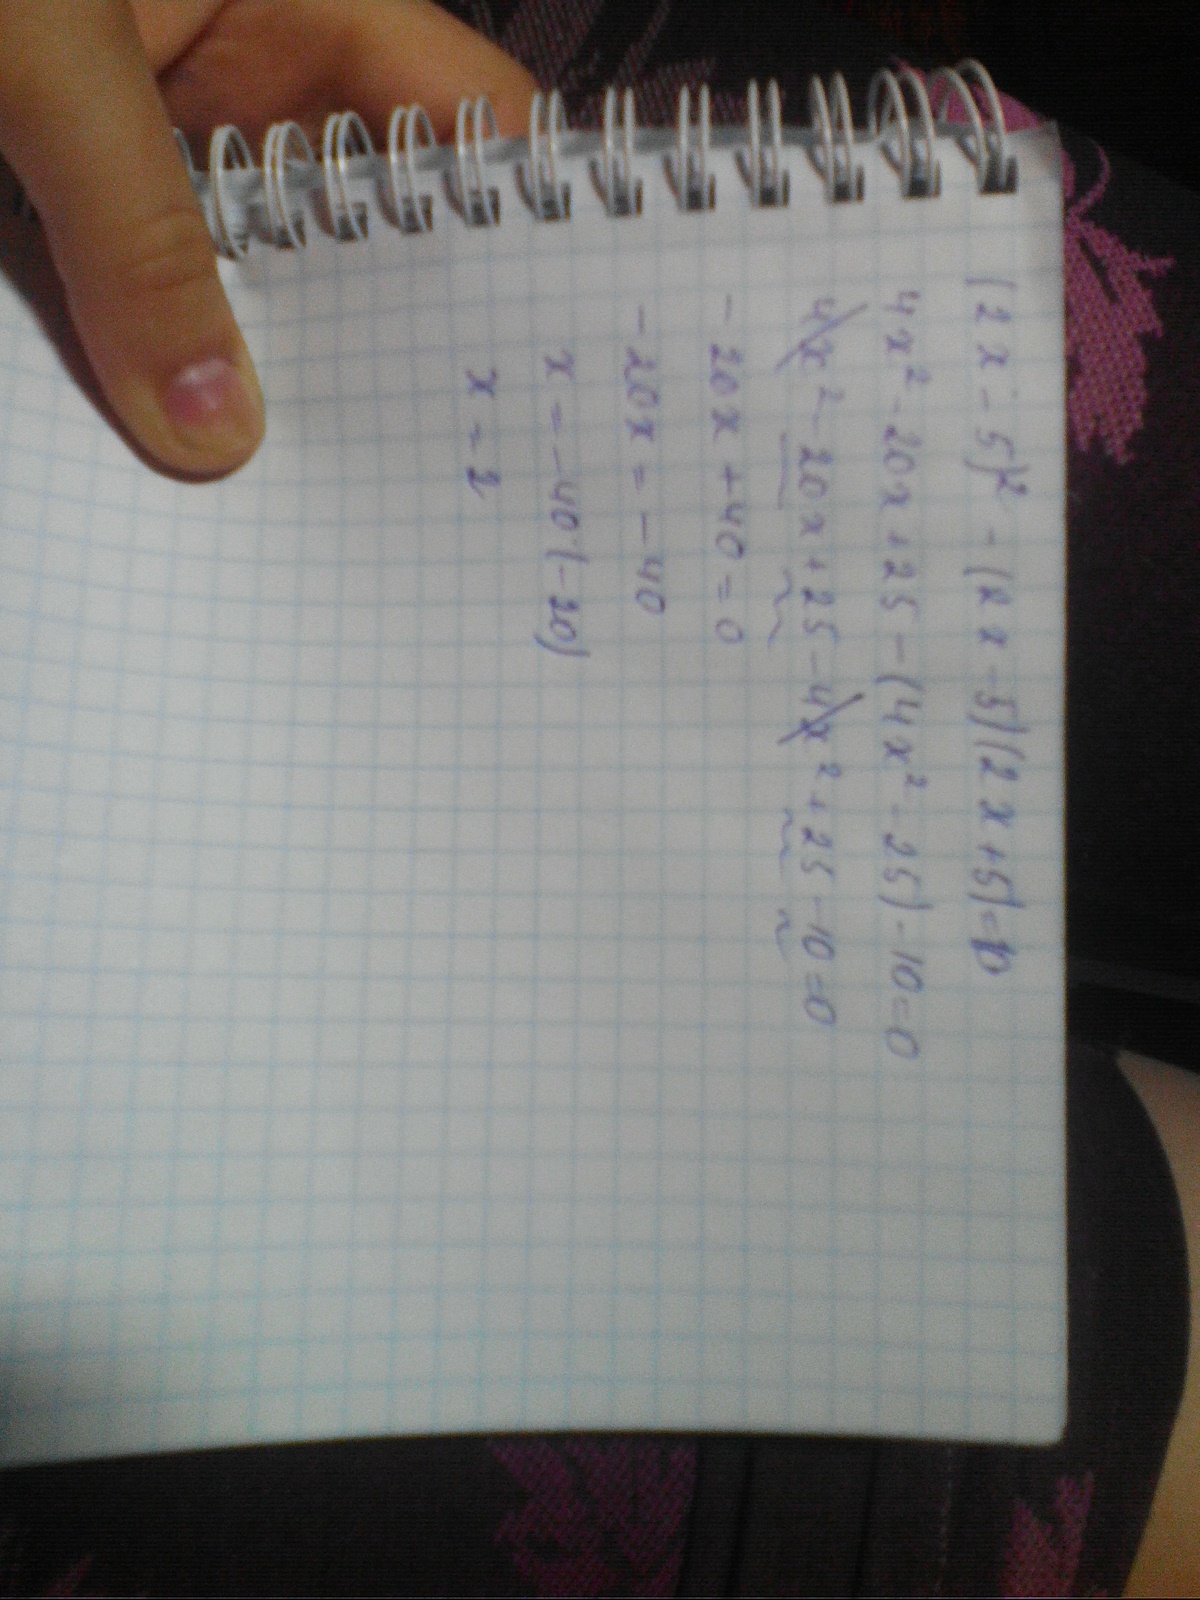 (2x-5)² - (2x-5)(2x+5)=10
4x²-20x+25-(4x²-25)-10=0
4x²-20x+25-4x²+25-10=0
-20x+40=0
-20x=-40
x=-40/(-20)
x=2